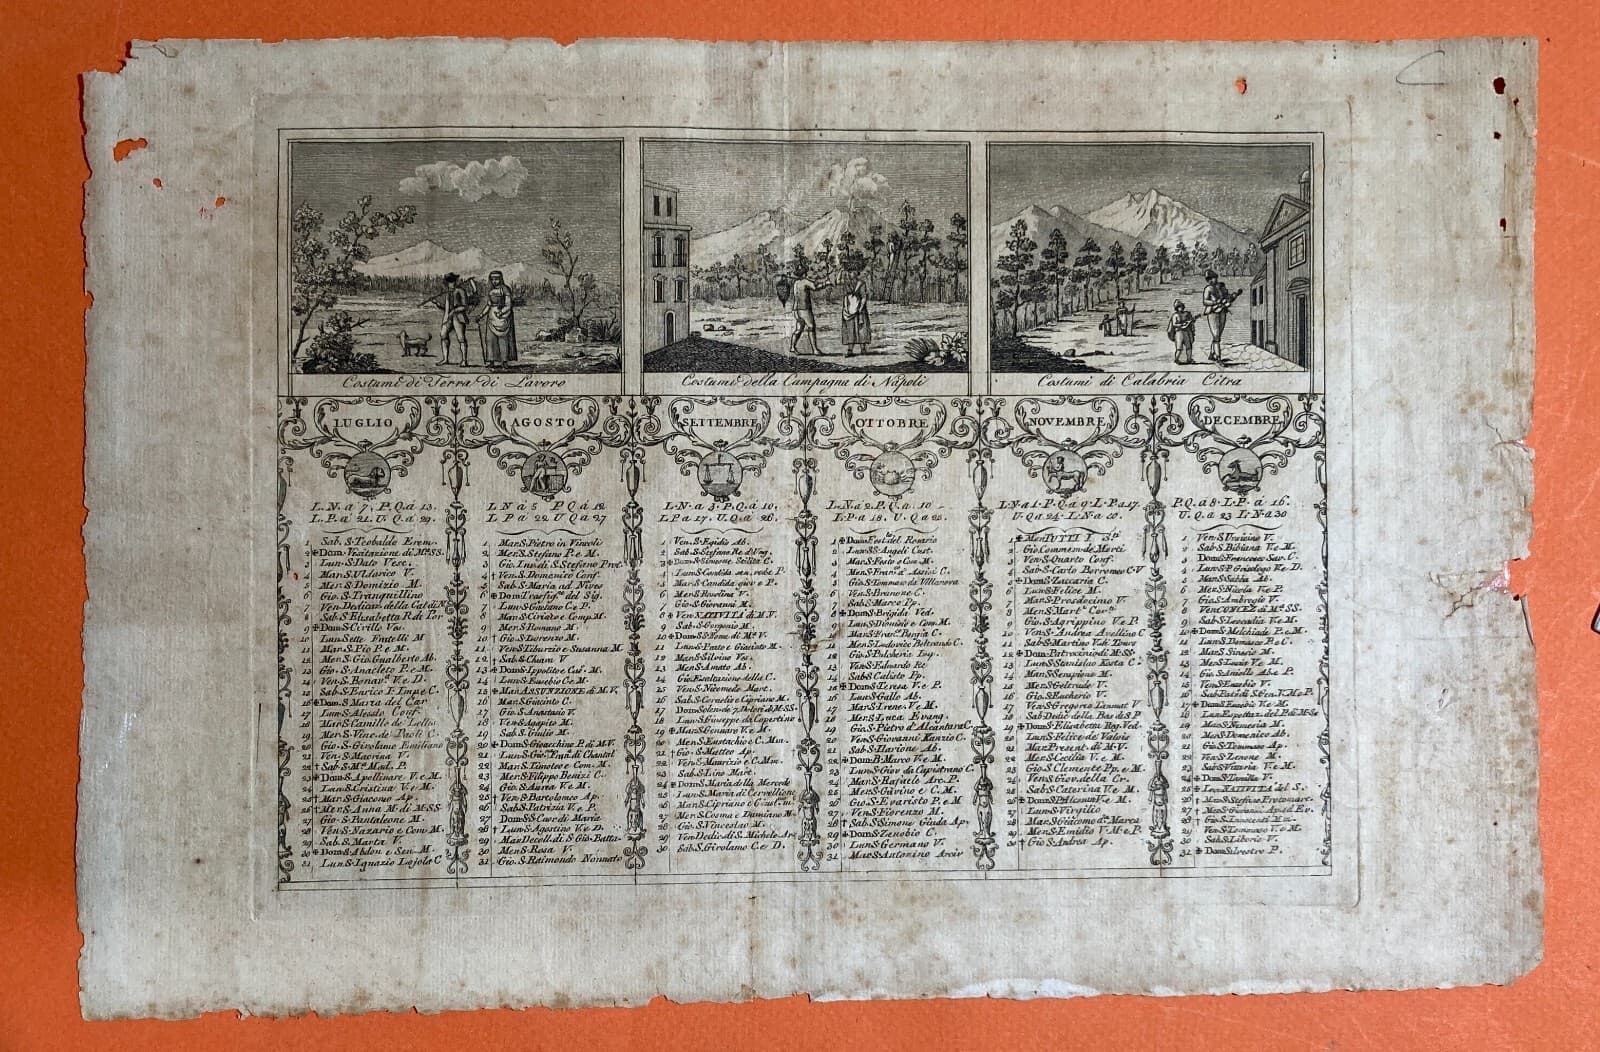 Costumi di Terra di Lavoro
Costumi della Campagna di Napoli
Costumi di Calabria Citra
LUGLIO
L.N. a 7, P.Q. a 13,
L.P. a 21. U.Q. a 29.
1 Sab. S. Teobaldo Erem.
2 Dom. Visitazione di M. SS.
3 Lun. S. Dato Vesc.
4 Mar. S. Uldarico V.
5 Mer. S. Domizio M.
6 Gio. S. Tranquillino
7 Ven. Dedicaz. della Cat. di N.
8 Sab. S. Elisabetta R. di Por
9 Dom. S. Cirillo Ves.
10 Lun. Sette Fratelli M
11 Mar. S. Pio P. e M.
12 Mer. S. Gio. Gualberto Ab.
13 Gio. S. Anacleto P. e M.
14 Ven. S. Bonav. V. e D.
15 Sab. S. Enrico I. Imp. C.
16 Dom. S. Maria del Car
17 Lun. S. Alessio Conf.
18 Mar. S. Camillo de Lellis
19 Mer. S. Vinc. de Paoli C.
20 Gio. S. Girolamo Emiliano
21 Ven. S.
22 Sab. S. M. Mad. P.
23 Dom. S. Apollinare V. e M.
24 Lun. S. Cristina V. e M.
25 Mar. S. Giacomo Ap.
26 Mer. S. Anna M. di M. SS.
27 Gio. S. Pantaleone M.
28 Ven. S. Nazario e Com. M.
29 Sab. S. Marta V.
30 Dom. S. Abdon e Sen. M.
31 Lun. S. Ignazio Lojola C
AGOSTO
L N a 5 P Q a 12
L P a 20 U Q a 27
1 Mar. S. Pietro in Vincoli
2 Mer. S. Stefano P. e M.
3 Gio. Inv. di S. Stefano Prot.
4 Ven. S. Domenico Conf.
5 Sab. S. Maria ad Nives
6 Dom. Trasfig. del Sig.
7 Lun. S. Gaetano C. e P.
8 Mar. S. Ciriaco e Comp. M.
9 Mer. S. Romano M.
10 Gio. S. Lorenzo M.
11 Ven. S. Tiburzio e Susanna M.
12 Sab. S. Chiara V
13 Dom. S. Ippolito e Cas. M.
14 Lun. S. Eusebio C. e M.
15 Mar. ASSUNZIONE di M.V.
16 Mer. S. Giacinto C.
17 Gio. S. Anastasio V.
18 Ven. S. Agapito M.
19 Sab. S. Giulio M.
20 Dom. S. Gioacchino P. di M.V.
21 Lun. S. Gio. Fran. di Chantal
22 Mar. S. Timoteo e Com. M.
23 Mer. S. Filippo Benizi C.
24 Gio. S. Aurea V. e M.
25 Ven. S. Bartolomeo Ap.
26 Sab. S. Patrizia V. e P.
27 Dom SS Cuor di Maria
28 Lun. S. Agostino V. e D.
29 Mar. Decoll. di S. Gio. Batta.
30 Mer. S. Rosa V.
31 Gio. S. Raimondo Nonnato
SETTEMBRE
L.N. a 3, P.Q. a 10,
L.P. a 17, U.Q. a 26,
1 Ven. S. Egidio Ab.
2 Sab. S. Stefano Re d'Ung.
3 Dom. S. Simeone Stilita C.
4 Lun. S. Candida sen. ved. e P.
5 Mar. S. Candida giov. e P.
6 Mer. S. Rosolina V.
7 Gio. S. Giovanni M.
8 Ven. NATIVITÀ di M.V.
9 Sab. S. Gorgonio M.
10 Dom. SS. Nome di M. V.
11 Lun. S. Proto e Giacinto M.
12 Mar. S. Silvino Ves.
13 Mer. S. Amato Ab.
14 Gio. Esaltazione della C.
15 Ven. S. Nicomede Mart.
16 Sab. S. Cornelio e Cipriano M.
17 Dom. Solen. de 7. Dolori di M. SS.
18 Lun. S. Giuseppe da Copertino
19 Mar. S. Gennaro V. e M.
20 Mer. S. Eustachio e C. Mm.
21 Gio. S. Matteo Ap.
22 Ven. S. Maurizio e C. Mm.
23 Sab. S. Lino Mart.
24 Dom. S. Maria della Mercede
25 Lun. S. Maria di Cervellione
26 Mar. S. Cipriano e Giust. m.
27 Mer. S. Cosma e Damiano M.
28 Gio. S. Vinceslao M.
29 Ven. Dedic. di S. Michele Ar.
30 Sab. S. Girolamo C. e D.
OTTOBRE
L.N. a 2. P.Q. a 10
L.P. a 18, U.Q. a 25.
1 Dom. Fest. del Rosario
2 Lun. SS. Angeli Cust.
3 Mar. S. Festo e Com. M.
4 Mer. S. Fran. d'Assisi C.
5 Gio. S. Tommaso da Villanova
6 Ven. S. Brunone C.
7 Sab. S. Marco Pp.
8 Dom. S. Brigida Ved.
9 Lun. S. Dionisio e Com. M.
10 Mar. S. Fran. Borgia C.
11 Mer. S. Ludovico Beltrando C.
12 Gio. S. Pulcheria Imp.
13 Ven. S. Eduardo Re
14 Sab. S. Calisto Pp.
15 Dom. S. Teresa V. e P.
16 Lun. S. Gallo Ab.
17 Mar. S. Irene V. e M.
18 Mer. S. Luca Evang.
19 Gio. S. Pietro d'Alcantara C.
20 Ven. S. Giovanni Kanzio C.
21 Sab. S. Ilarione Ab.
22 Dom. S. Marco V. e M.
23 Lun. S. Giov da Capistrano C.
24 Mar. S. Rafaele Arc. P.
25 Mer. S. Gavino e C. M.
26 Gio. S. Evaristo P. e M
27 Ven. S. Fiorenzo M.
28 Sab. S. Simone Giuda Ap.
29 Dom. S. Zenobio C.
30 Lun. S. Germano V.
31 Mar. S. Antonino Arciv
NOVEMBRE
L.N. a 1. P.Q. a 9. L.P. a 17.
U.Q. a 24. L.N. a 30.
1 Mer. TUTTI I Sti
2 Gio. Commem. de Morti
3 Ven. S. Quarto Conf.
4 Sab. S. Carlo Borromeo C. V
5 Dom. S. Zaccaria C.
6 Lun. S. Felice M.
7 Mar. S. Prosdocimo V.
8 Mer. S. Mart.
9 Gio. S. Agrippino V. e P.
10 Ven. S. Andrea Avellino C
11 Sab. S. Martino V. di Tours
12 Dom. Patrocinio di M. SS.
13 Lun. S. Stanislao Kostka C.
14 Mar. S. Serapione M.
15 Mer. S. Geltrude V.
16 Gio. S. Eucherio V.
17 Ven. S. Gregorio Taumat. V
18 Sab. Dedic. della Bas. di S. P.
19 Dom. S. Elisabetta Reg. Ved.
20 Lun. S. Felice de Valois
21 Mar. Present. di M. V.
22 Mer. S. Cecilia V. e M.
23 Gio. S. Clemente Pp. e M.
24 Ven. S. Giov. della Cr.
25 Sab. S. Caterina V. e M.
26 Dom.
27 Lun. S. Virgilio
28 Mar. S. Giacomo d. Marca
29 Mer. S.
30 Gio. S. Andrea Ap.
DECEMBRE
P.Q. a 8. L.P. a 16.
U.Q. a 23 L.N. a 30
1 Ven. S.
2 Sab. S. Bibiana V. e M.
3 Dom. S. Francesco Sav. C.
4 Lun. S. P. Grisologo V. e D.
5 Mar. S. Sabba Ab.
6 Mer. S. Nicola V. e P.
7 Gio. S. Ambrogio V.
8 Ven. CONCEZ. di M. SS.
9 Sab. S. Leocadia V. e M.
10 Dom. S. Melchiade P. e M.
11 Lun. S. Damaso P. e C.
12 Mar. S. Sinesio M.
13 Mer. S. Lucia V. e M.
14 Gio. S. Aniello Ab. e P.
15 Ven. S. Eusebio V.
16 Sab.
17 Dom. S.
18 Lun. Espettaz. del P. di M. SS
19 Mar. S. Nemesia M.
20 Mer. S. Domenico Ab.
21 Gio. S. Tommaso Ap.
22 Ven. S. Zenone M.
23 Sab. S. Vittoria V. e M.
24 Dom. S.
25 Lun. NATIVITÀ del S.
26 Mar. S. Stefano Protomart.
27 Mer. S. Giovanni Ap. ed Ev.
28 Gio. S. Innocenti Mm.
29 Ven. S. Tommaso V. e M.
30 Sab. S. Liborio V.
31 Dom. S. Silvestro P.